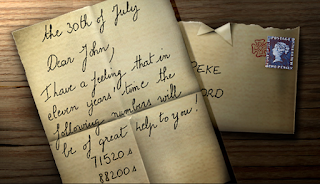 the 30th of July
Dear John,
I have a feeling that in
eleven years' time the
following numbers will
be of great help to you!
71520s
88200s
POSTAGE
EKE
ORD